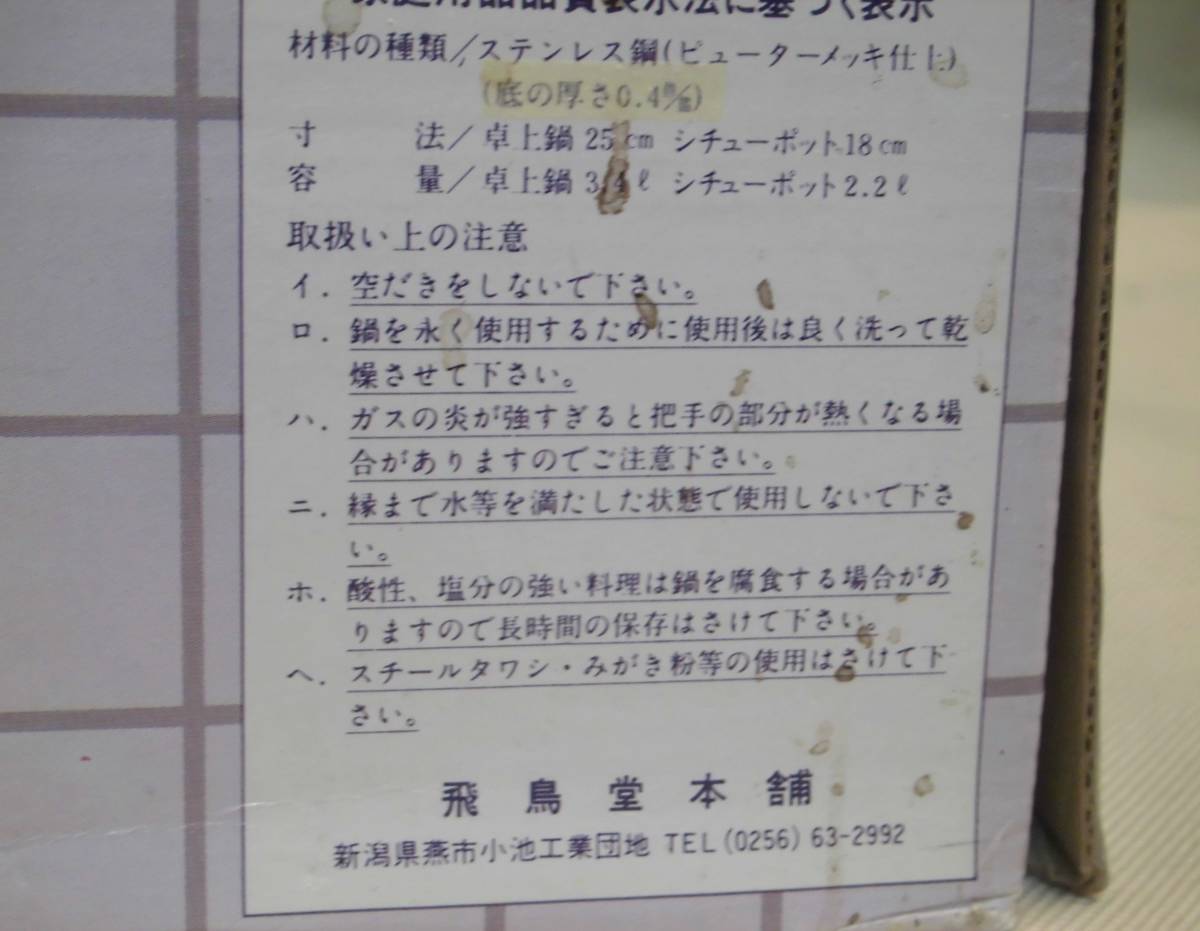 家庭用品品質表示法に基づく表示
材料の種類/ステンレス鋼(ピューターメッキ仕上)
(底の厚さ0.4㎜)
寸　　　法/卓上鍋25cm シチューポット18cm
容　　　量/卓上鍋3.4ℓ シチューポット2.2ℓ
取扱い上の注意
イ. 空だきをしないで下さい。
ロ. 鍋を永く使用するために使用後は良く洗って乾
燥させて下さい。
ハ. ガスの炎が強すぎると把手の部分が熱くなる場
合がありますのでご注意下さい。
ニ. 縁まで水等を満たした状態で使用しないで下さ
い。
ホ. 酸性、塩分の強い料理は鍋を腐食する場合があ
りますので長時間の保存はさけて下さい。
ヘ. スチールタワシ・みがき粉等の使用はさけて下
さい。
飛鳥堂本舗
新潟県燕市小池工業団地 TEL(0256)63-2992